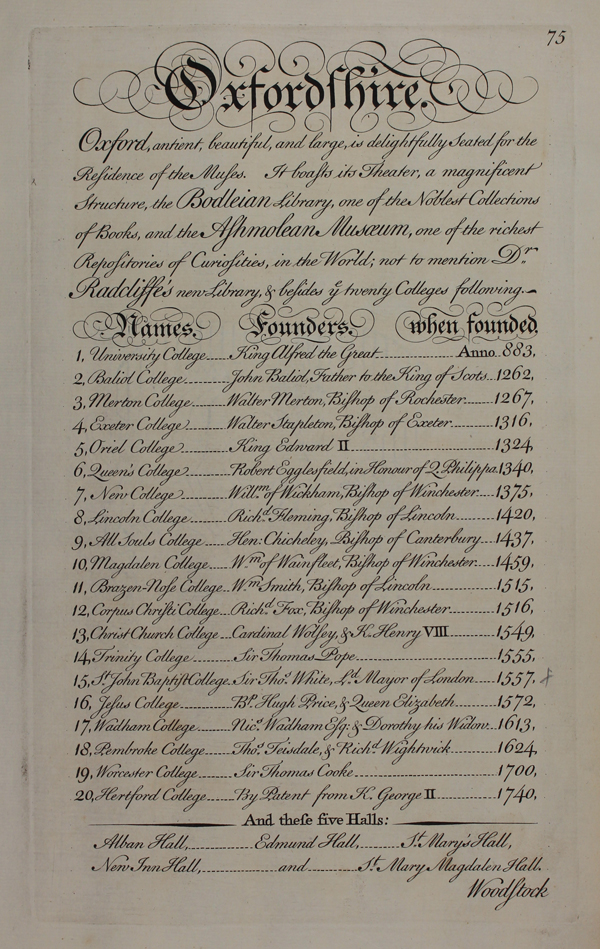 75
Oxfordſhire.
Oxford, antient, beautiful, and large, is delightfully Seated for the
Reſidence of the Muſes. It boaſts its Theater, a magnificent
Structure, the Bodleian Library, one of the Nobleſt Collections
of Books, and the Aſhmolean Musæum, one of the richest
Repoſitories of Curioſities, in the World; not to mention Dr.
Radcliffe's new Library, & beſides ye twenty Colleges following.
Names. Founders. when founded.
1, University College King Alfred the Great Anno 883,
2, Baliol College John Baliol, Father to the King of Scots 1262,
3, Merton College Walter Merton, Biſhop of Rocheſter 1267,
4, Exeter College Walter Stapleton, Biſhop of Exeter 1316,
5, Oriel College King Edward II 1324,
6, Queen's College Robert Egglesfield, in Honour of Q. Philippa 1340,
7, New College Willm. of Wickham, Biſhop of Wincheſter 1375,
8, Lincoln College Richd. Fleming, Biſhop of Lincoln 1420,
9, All Souls College Hen: Chicheley, Biſhop of Canterbury 1437,
10, Magdalen College Wm. of Wainfleet, Biſhop of Wincheſter 1459,
11, Brazen-Noſe College Wm. Smith, Biſhop of Lincoln 1515,
12, Corpus Chriſti College Richd. Fox, Biſhop of Wincheſter 1516,
13, Christ Church College Cardinal Wolſey, & K. Henry VIII 1549,
14, Trinity College Sir Thomas Pope 1555,
15, St. John Baptiſt College Sir Thos. White, Ld. Mayor of London 1557,
16, Jeſus College Bp. Hugh Price, & Queen Elizabeth 1572,
17, Wadham College Nics. Wadham Eſq: & Dorothy his Widow 1613,
18, Pembroke College Thos. Teisdale, & Richd. Wightwick 1624,
19, Worceſter College Sir Thomas Cooke 1700,
20, Hertford College By Patent from K. George II 1740,
And theſe five Halls:
Alban Hall, Edmund Hall, St. Mary's Hall,
New Inn Hall, and St. Mary Magdalen Hall.
Woodſtock